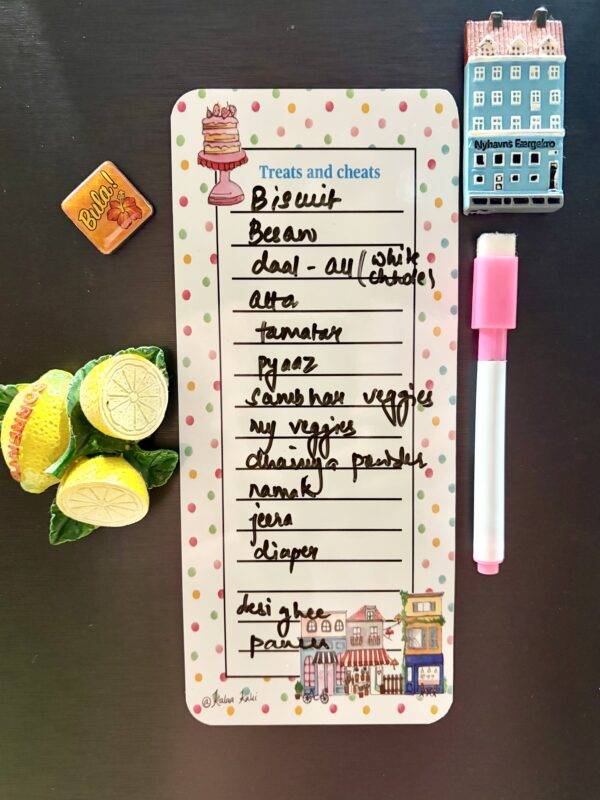 Nyhavns Færgekro
Treats and cheats
Biscuit
Besan
daal - all (white chhole)
atta
Bula!
tamatar
pyaaz
SORRENTO
sambhar veggies
my veggies
dhaniya powder
namak
jeera
diaper
desi ghee
paneer